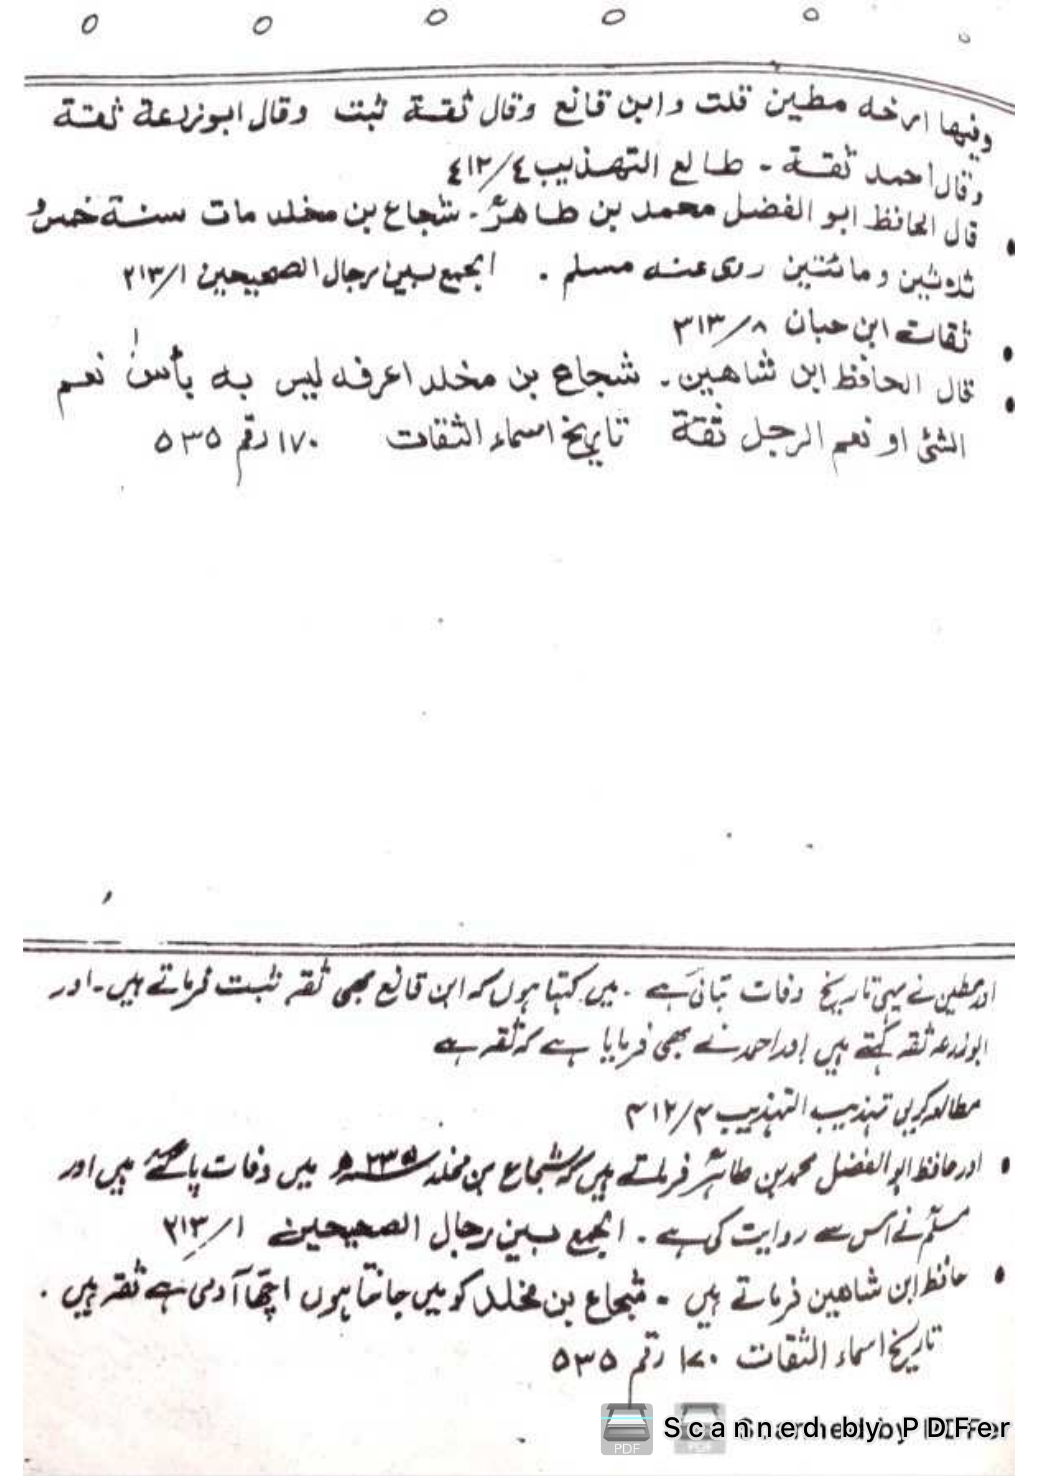 وفیها ارخه مطین قلت وابن قانع وقال ثقة ثبت وقال ابوزرعة ثقة
وقال احمد ثقة - طالع التهذیب ٤/٤١٢
قال الحافظ ابو الفضل محمد بن طاهرؒ - شجاع بن مخلد مات سنة خمس و
ثلاثین ومائتین روی عنه مسلم . الجمع بین رجال الصحیحین ١/٢١٣
ثقات ابن حبان ٨/٣١٣
قال الحافظ ابن شاهین - شجاع بن مخلد اعرفه لیس به بأس نعم
الشئ او نعم الرجل ثقة تاریخ اسماء الثقات ١٧٠ رقم ٥٣٥
اور مطین نے یہی تاریخ وفات بتائی ہے . میں کہتا ہوں کہ ابن قانع بھی ثقہ ثبت فرماتے ہیں - اور
ابوزرعہ ثقہ کہتے ہیں اور احمد نے بھی فرمایا ہے کہ ثقہ ہے
مطالعہ کریں تہذیب التہذیب ۴/۴۱۲
اور حافظ ابوالفضل محمد بن طاہرؒ فرماتے ہیں کہ شجاع بن مخلد ۲۳۵ھ میں وفات پاگئے ہیں اور
مسلم نے اس سے روایت کی ہے . الجمع بین رجال الصحیحین ۱/۲۱۳
حافظ ابن شاهین فرماتے ہیں - شجاع بن مخلد کو میں جانتا ہوں اچھا آدمی ہے ثقہ ہیں .
تاریخ اسماء الثقات ۱۷۰ رقم ۵۳۵
Scanned by PDFer